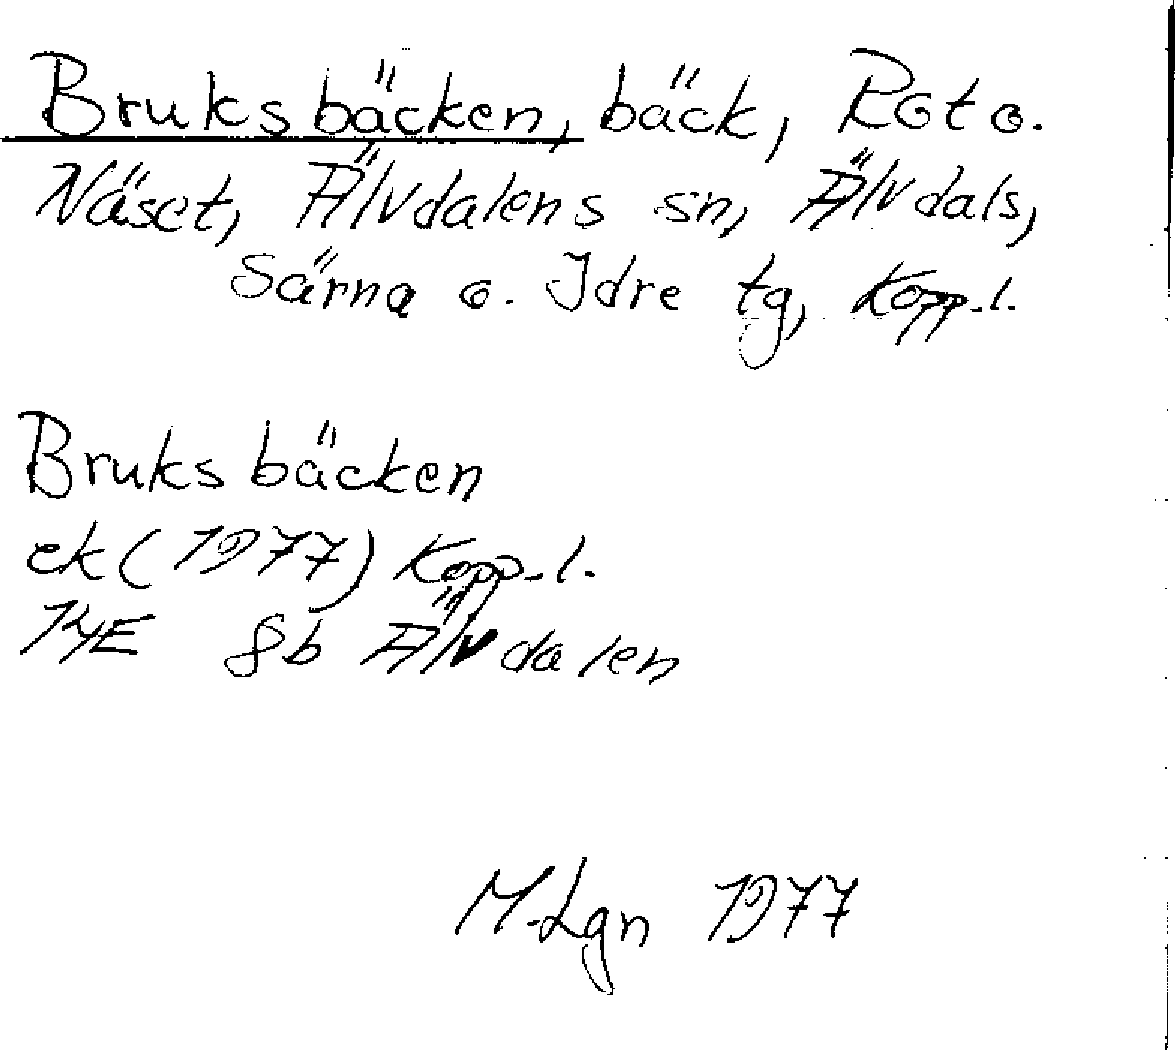 Bruksbäcken, bäck, Rot o.
Näset, Älvdalens sn, Älvdals,
Särna o. Idre tg, Kopp.l.
Bruksbäcken
ek (1977) Kopp.l.
14E 8b Älvdalen
M.Lgn 1977